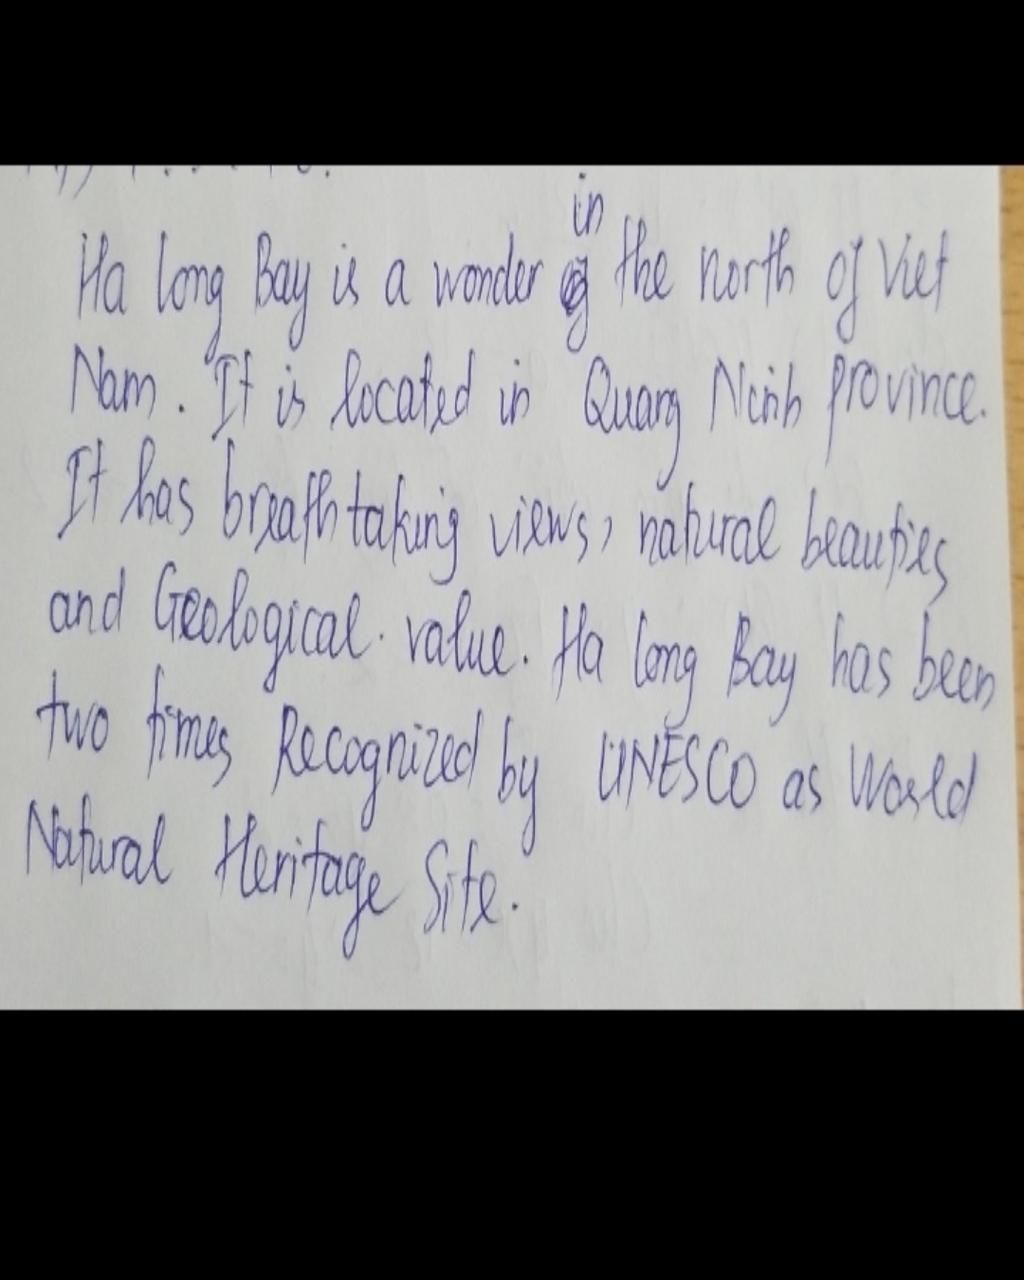 in
Ha long Bay is a wonder the north of Viet
Nam. It is located in Quang Ninh province.
It has breathtaking views, natural beauties
and Geological value. Ha long Bay has been
two times Recognized by UNESCO as World
Natural Heritage Site.